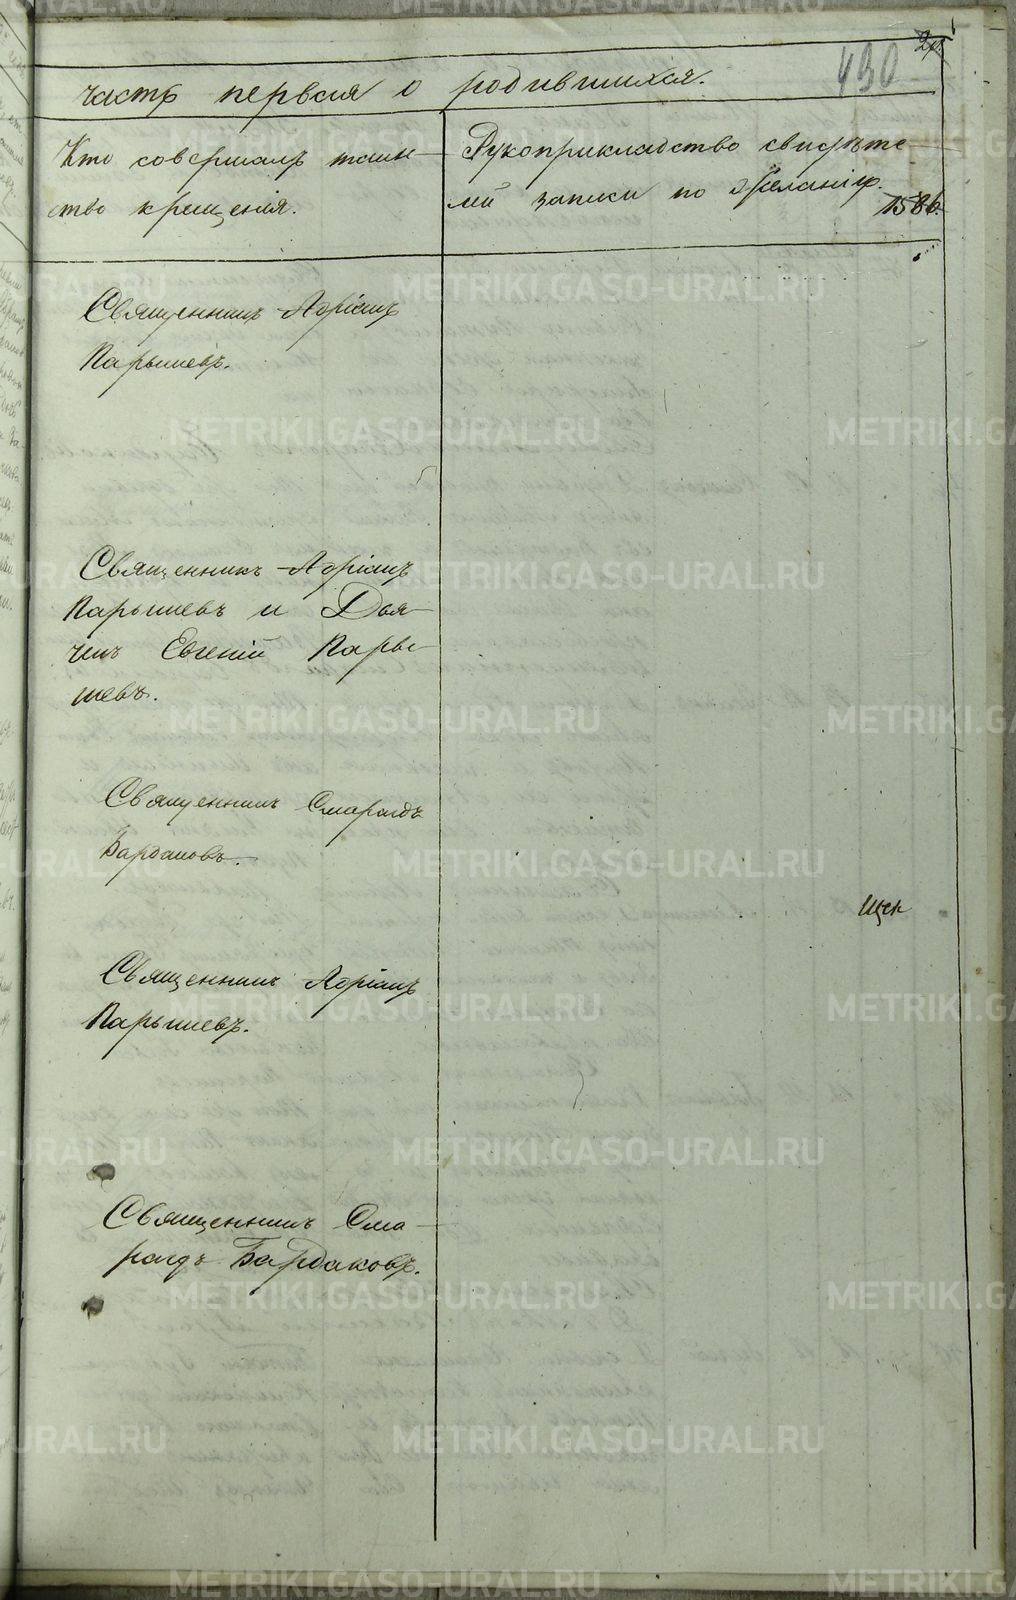 430
часть первая о родившихся.
Кто совершалъ таин-
ство крещенія.
Рукоприкладство свидѣте-
лей записи по желанію.
1586.
Священникъ Адріанъ
Парышевъ.
Священникъ Адріанъ
Парышевъ и Дья-
чекъ Евгеній Пары-
шевъ.
Священникъ Смарагдъ
Бардаковъ.
Священникъ Адріанъ
Парышевъ.
Священникъ Сма-
рагдъ Бардаковъ.
METRIKI.GASO-URAL.RU